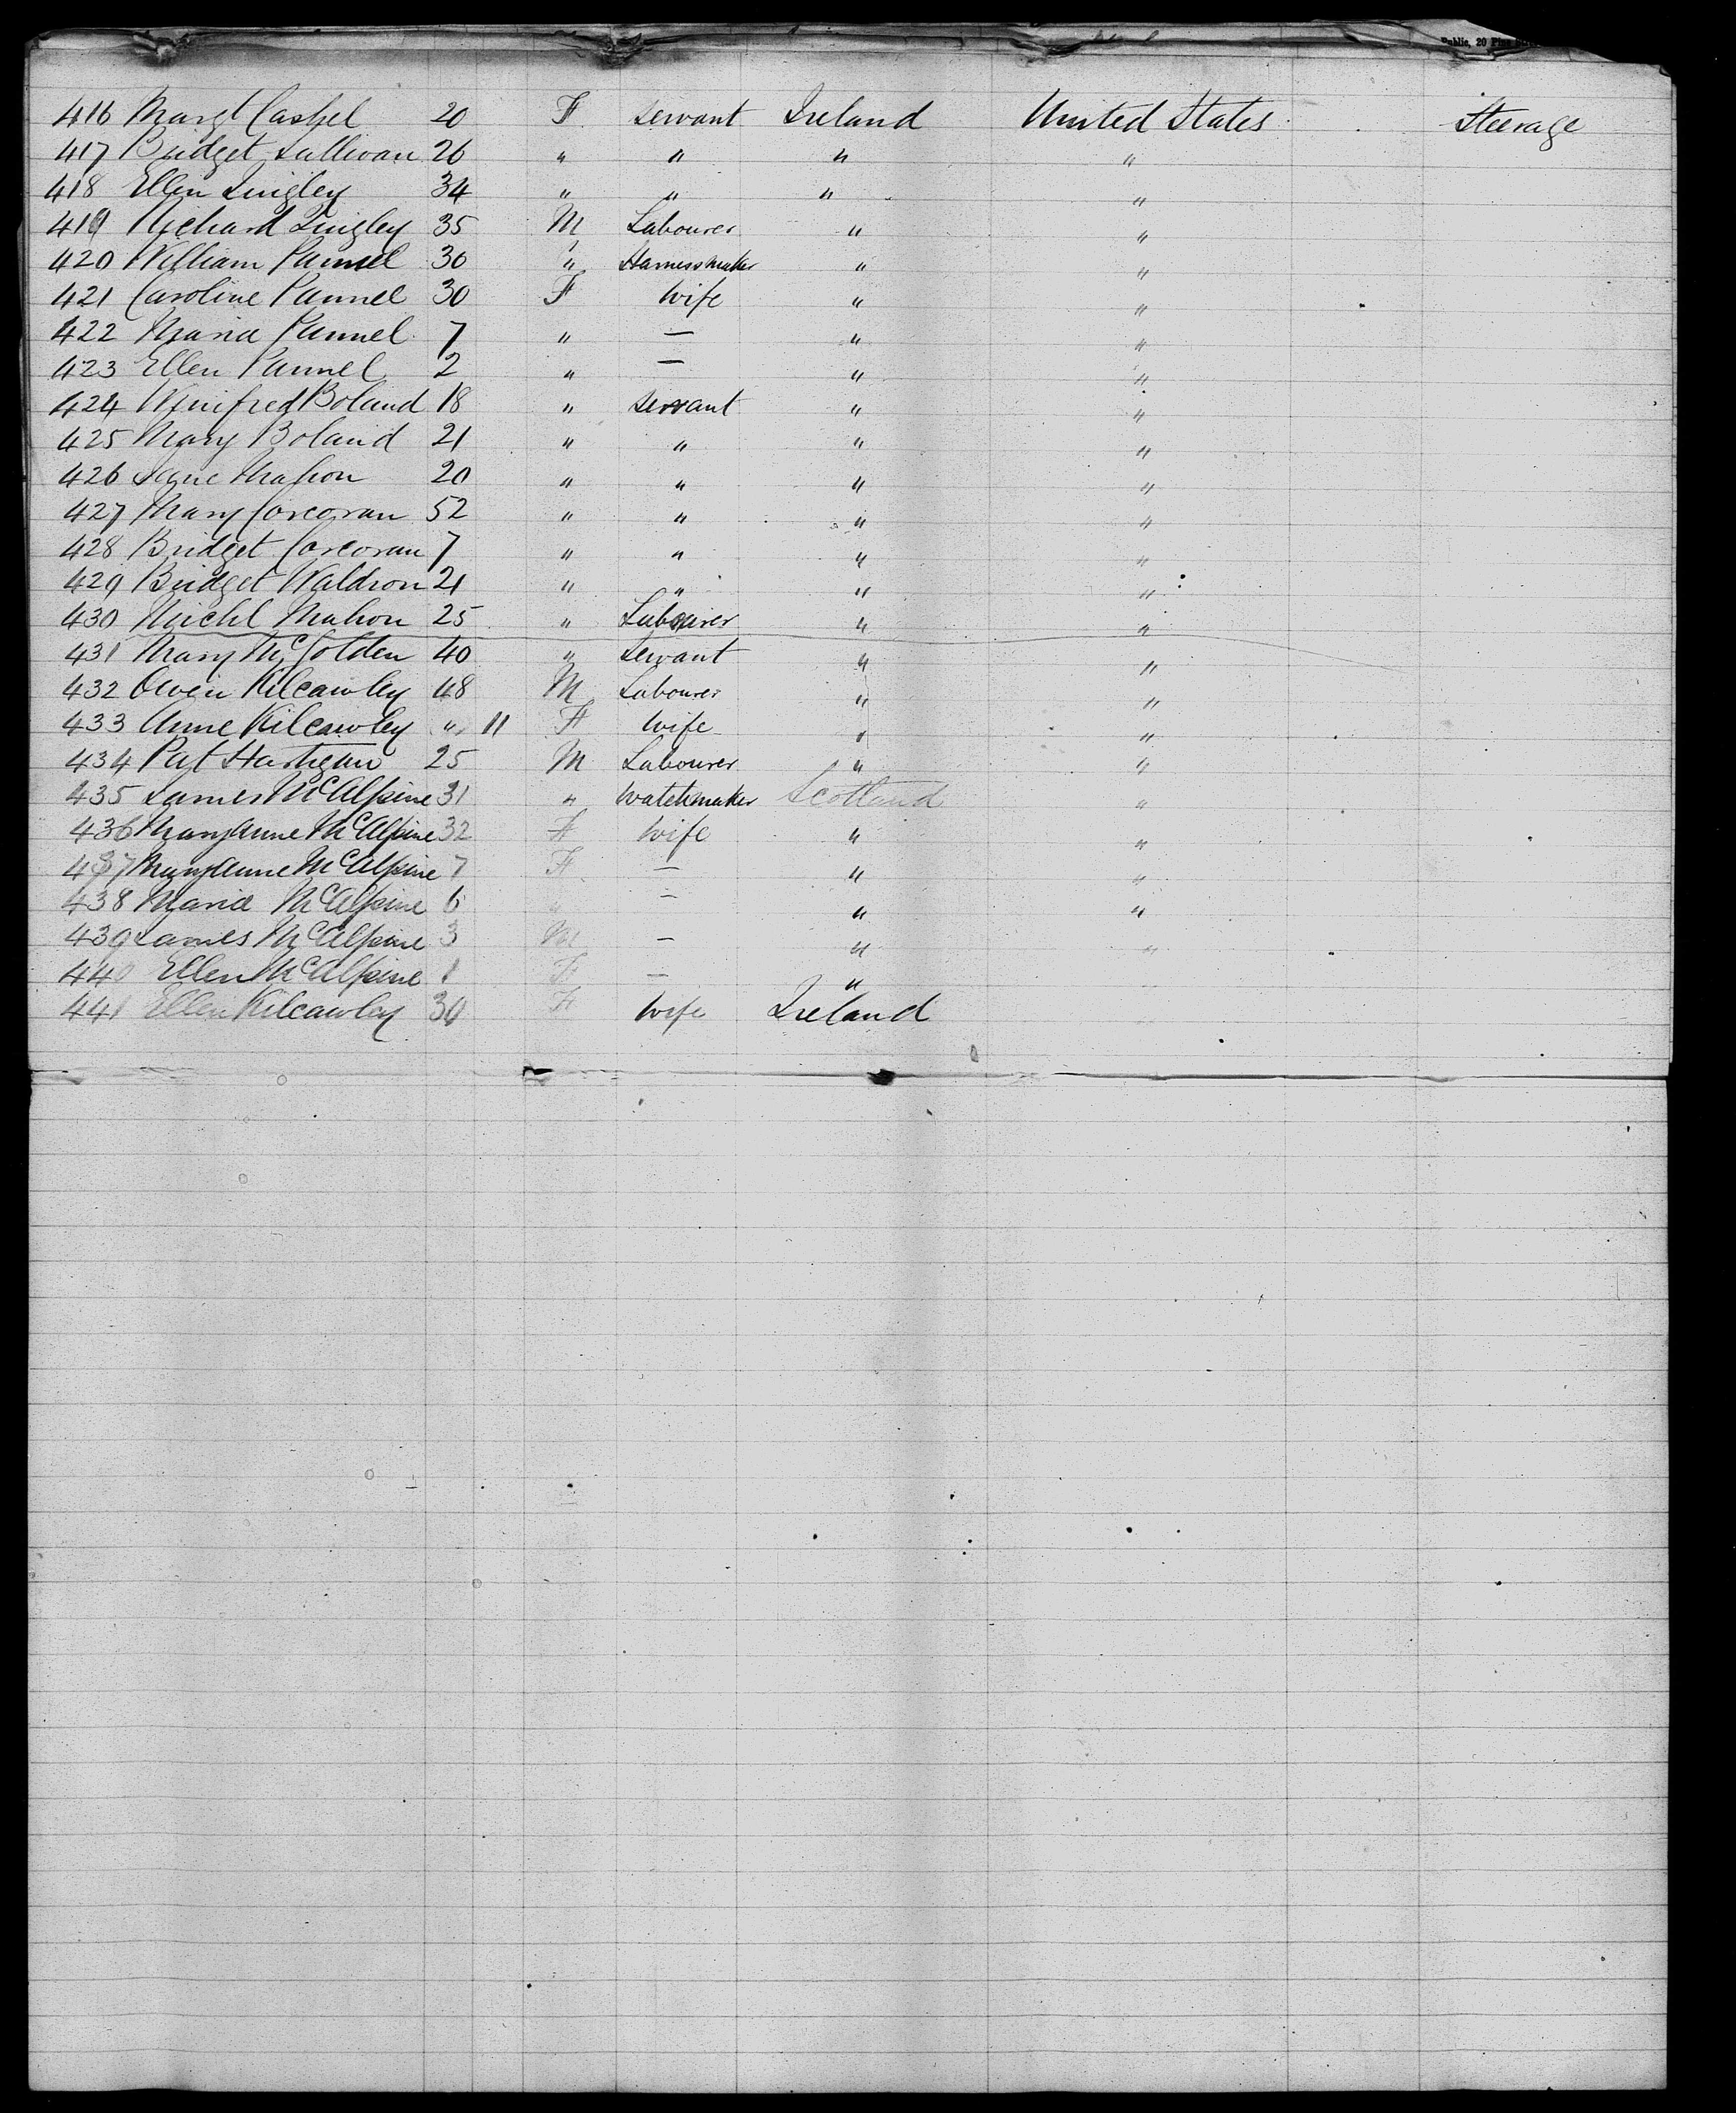 Public, 20 Pine
416 Margt Cashel 20 F servant Ireland United States Steerage
417 Bridget Sullivan 26 " " " "
418 Ellen Quigley 34 " " " "
419 Richard Quigley 35 M Labourer " "
420 William Pannel 30 " Harnessmaker " "
421 Caroline Pannel 30 F Wife " "
422 Maria Pannel 7 " — " "
423 Ellen Pannel 2 " — " "
424 Winifred Boland 18 " servant " "
425 Mary Boland 21 " " " "
426 Jane Mahon 20 " " " "
427 Mary Corcoran 52 " " " "
428 Bridget Corcoran 7 " " " "
429 Bridget Waldron 21 " " " "
430 Michl Mahon 25 " Labourer " "
431 Mary McGolden 40 " Servant " "
432 Owen Kilcawley 48 M Labourer " "
433 Anne Kilcawley " 11 F Wife " "
434 Pat Hartigan 25 M Labourer " "
435 James McAlpine 31 " Watchmaker Scotland "
436 Maryanne McAlpine 32 F Wife " "
437 Maryanne McAlpine 7 F — " "
438 Maria McAlpine 6 " — " "
439 James McAlpine 3 M — " "
440 Ellen McAlpine 1 F — "
441 Ellen Kilcawley 30 F Wife Ireland